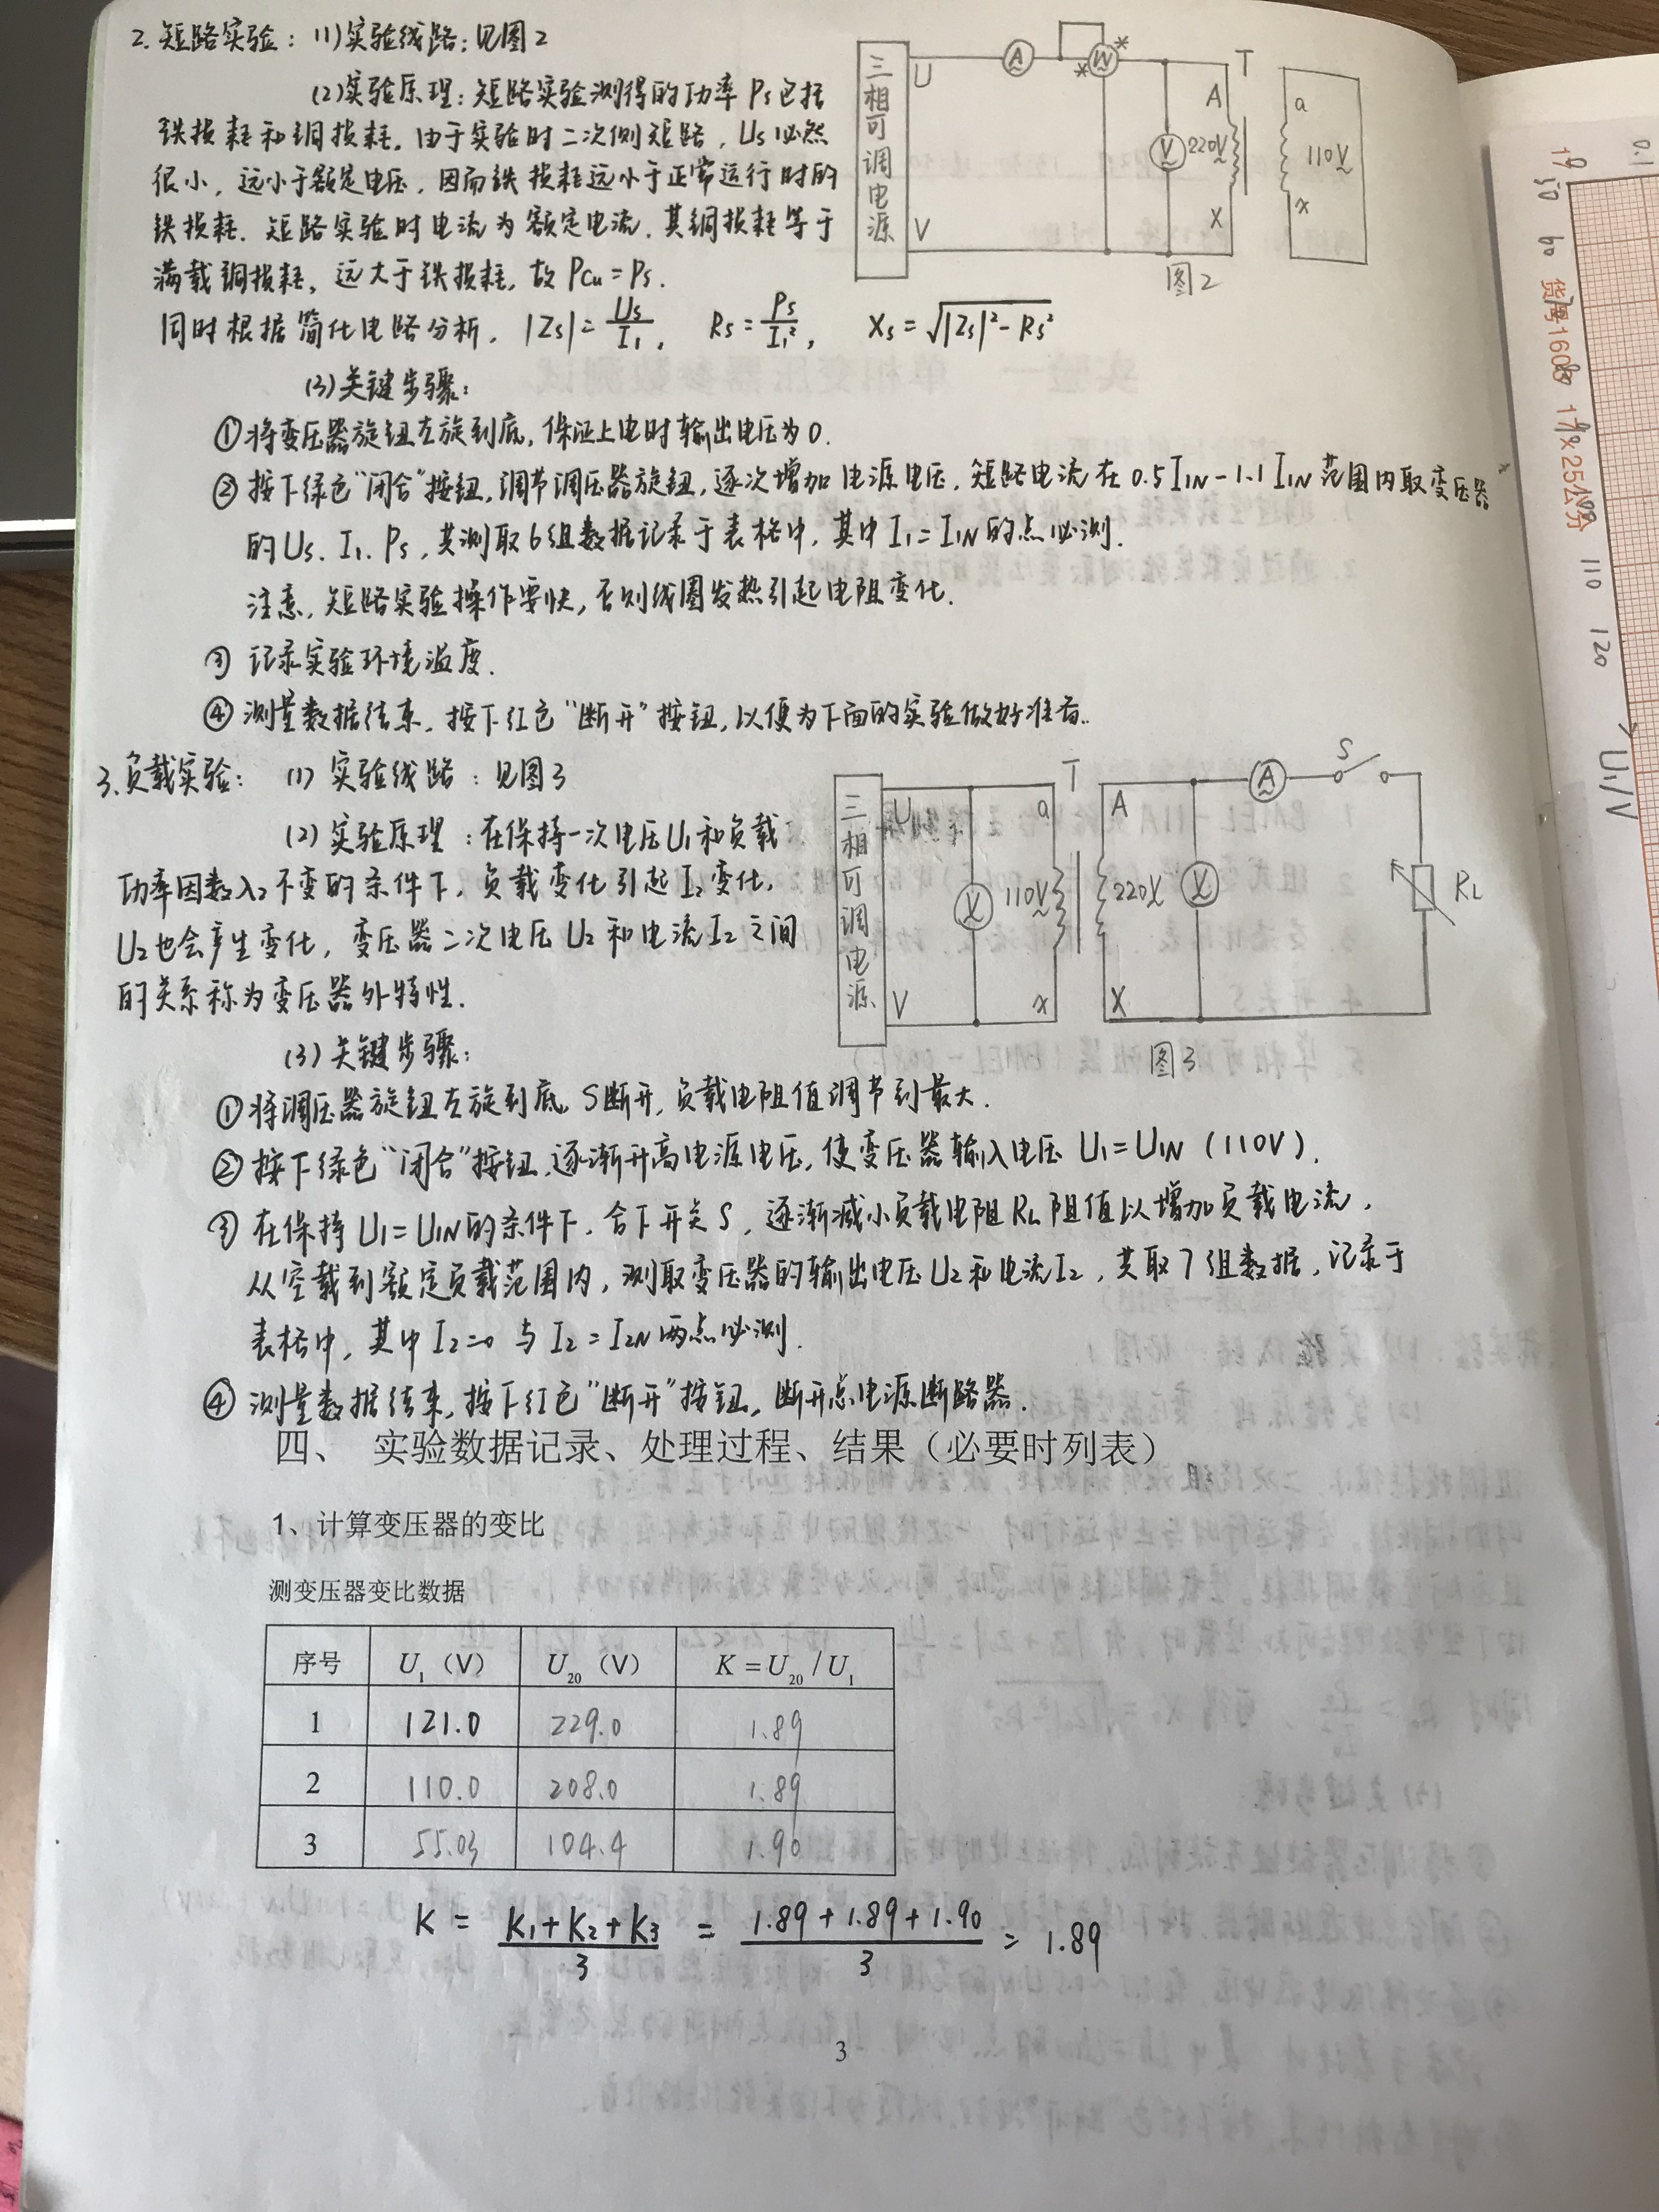 2. 短路实验: (1)实验线路: 见图2
(2)实验原理: 短路实验测得的功率 Ps 包括
铁损耗和铜损耗. 由于实验时二次侧短路, Us 必然
很小, 远小于额定电压, 因而铁损耗远小于正常运行时的
铁损耗. 短路实验时电流为额定电流, 其铜损耗等于
满载铜损耗, 远大于铁损耗, 故 PCu = Ps.
同时根据简化电路分析, |Zs| = Us/I₁, Rs = Ps/I₁², Xs = √(|Zs|² - Rs²)
三相可调电源
U
V
A
W
*
*
V
220V
A
X
T
a
x
110V
图2
(3)关键步骤:
①将变压器旋钮左旋到底, 保证上电时输出电压为0.
②按下绿色“闭合”按钮, 调节调压器旋钮, 逐次增加电源电压, 短路电流在 0.5 I1N - 1.1 I1N 范围内取变压器
的 Us. I₁. Ps, 共测取6组数据记录于表格中, 其中 I₁ = I1N 的点必测.
注意, 短路实验操作要快, 否则线圈发热引起电阻变化.
③ 记录实验环境温度.
④ 测量数据结束, 按下红色“断开”按钮, 以便为下面的实验做好准备..
3.负载实验: (1) 实验线路: 见图3
(2) 实验原理: 在保持一次电压U₁和负载
功率因数λ₂不变的条件下, 负载变化引起I₂变化,
U₂也会产生变化, 变压器二次电压U₂和电流I₂之间
的关系称为变压器外特性.
三相可调电源
U
V
V
110V
a
x
T
A
X
220V
V
A
S
RL
图3
(3)关键步骤:
①将调压器旋钮左旋到底, S断开, 负载电阻值调节到最大.
②按下绿色“闭合”按钮, 逐渐升高电源电压, 使变压器输入电压 U₁=U1N (110V).
③ 在保持U₁=U1N的条件下, 合下开关S, 逐渐减小负载电阻RL阻值以增加负载电流,
从空载到额定负载范围内, 测取变压器的输出电压U₂和电流I₂, 共取7组数据, 记录于
表格中, 其中 I₂=0 与 I₂=I2N 两点必测.
④ 测量数据结束, 按下红色“断开”按钮, 断开总电源断路器.
四、 实验数据记录、处理过程、结果（必要时列表）
1、计算变压器的变比
测变压器变比数据
序号 U₁（V） U₂₀（V） K=U₂₀/U₁
1 121.0 229.0 1.89
2 110.0 208.0 1.89
3 55.03 104.4 1.90
K = (K₁+K₂+K₃)/3 = (1.89+1.89+1.90)/3 = 1.89
3
0.1
110
120
U₁/V